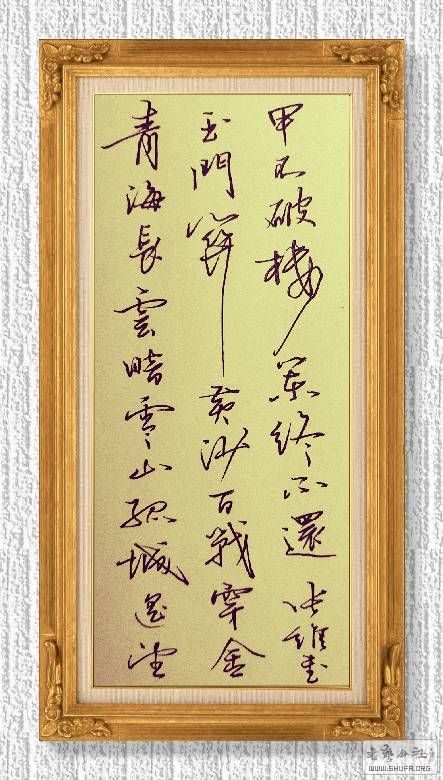 青海長雲暗雪山孤城遥望
玉門關黄沙百戰穿金
甲不破樓蘭終不還 张維
WWW.SHUFA.ORG